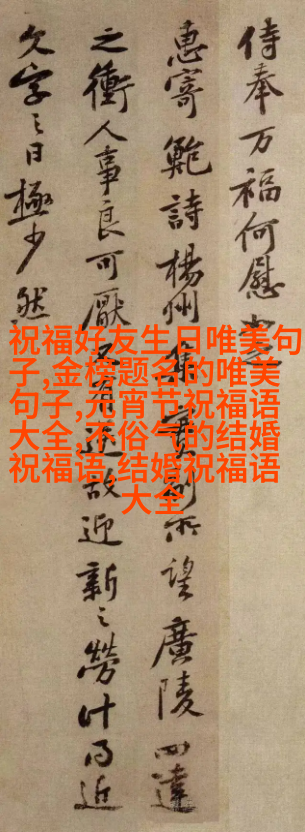 侍奉万福何慰
惠寄鮑詩楊州集實副所望廣陵四達
之衝人事良可厭又有送故迎新之勞計
日極少然
祝福好友生日唯美句
子,金榜题名的唯美
句子,元宵节祝福语
大全,不俗气的结婚
祝福语,结婚祝福语
大全